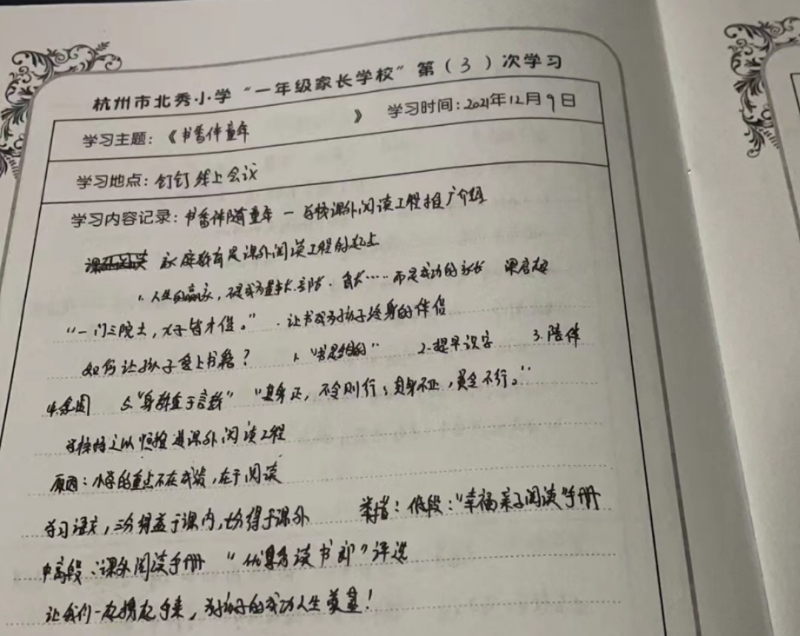 杭州市北秀小学“一年级家长学校”第(3)次学习
学习主题：《书香伴童年》 学习时间：2021年12月9日
学习地点：钉钉线上会议
学习内容记录：书香伴随童年 — 我校课外阅读工程推广介绍
家庭教育是课外阅读工程的起点
1. 人生的赢家，不是
“一门三院士，九子皆才俊。” 让书成为孩子终身的伴侣
如何让孩子爱上书籍？ 1. “书是甜的” 2. 提早识字 3. 陪伴
4. 氛围 5. “身教重于言教” “其身正，不令则行；其身不正，虽令不行。”
我校持之以恒推进课外阅读工程
原因：小学的重点不在成绩，在于阅读
学习语文，三分得益于课内，七分得于课外 举措：低段：“幸福亲子阅读”手册
中高段：课外阅读手册 “优秀读书郎”评选
让我们一起携起手来，为孩子的成功人生奠基！